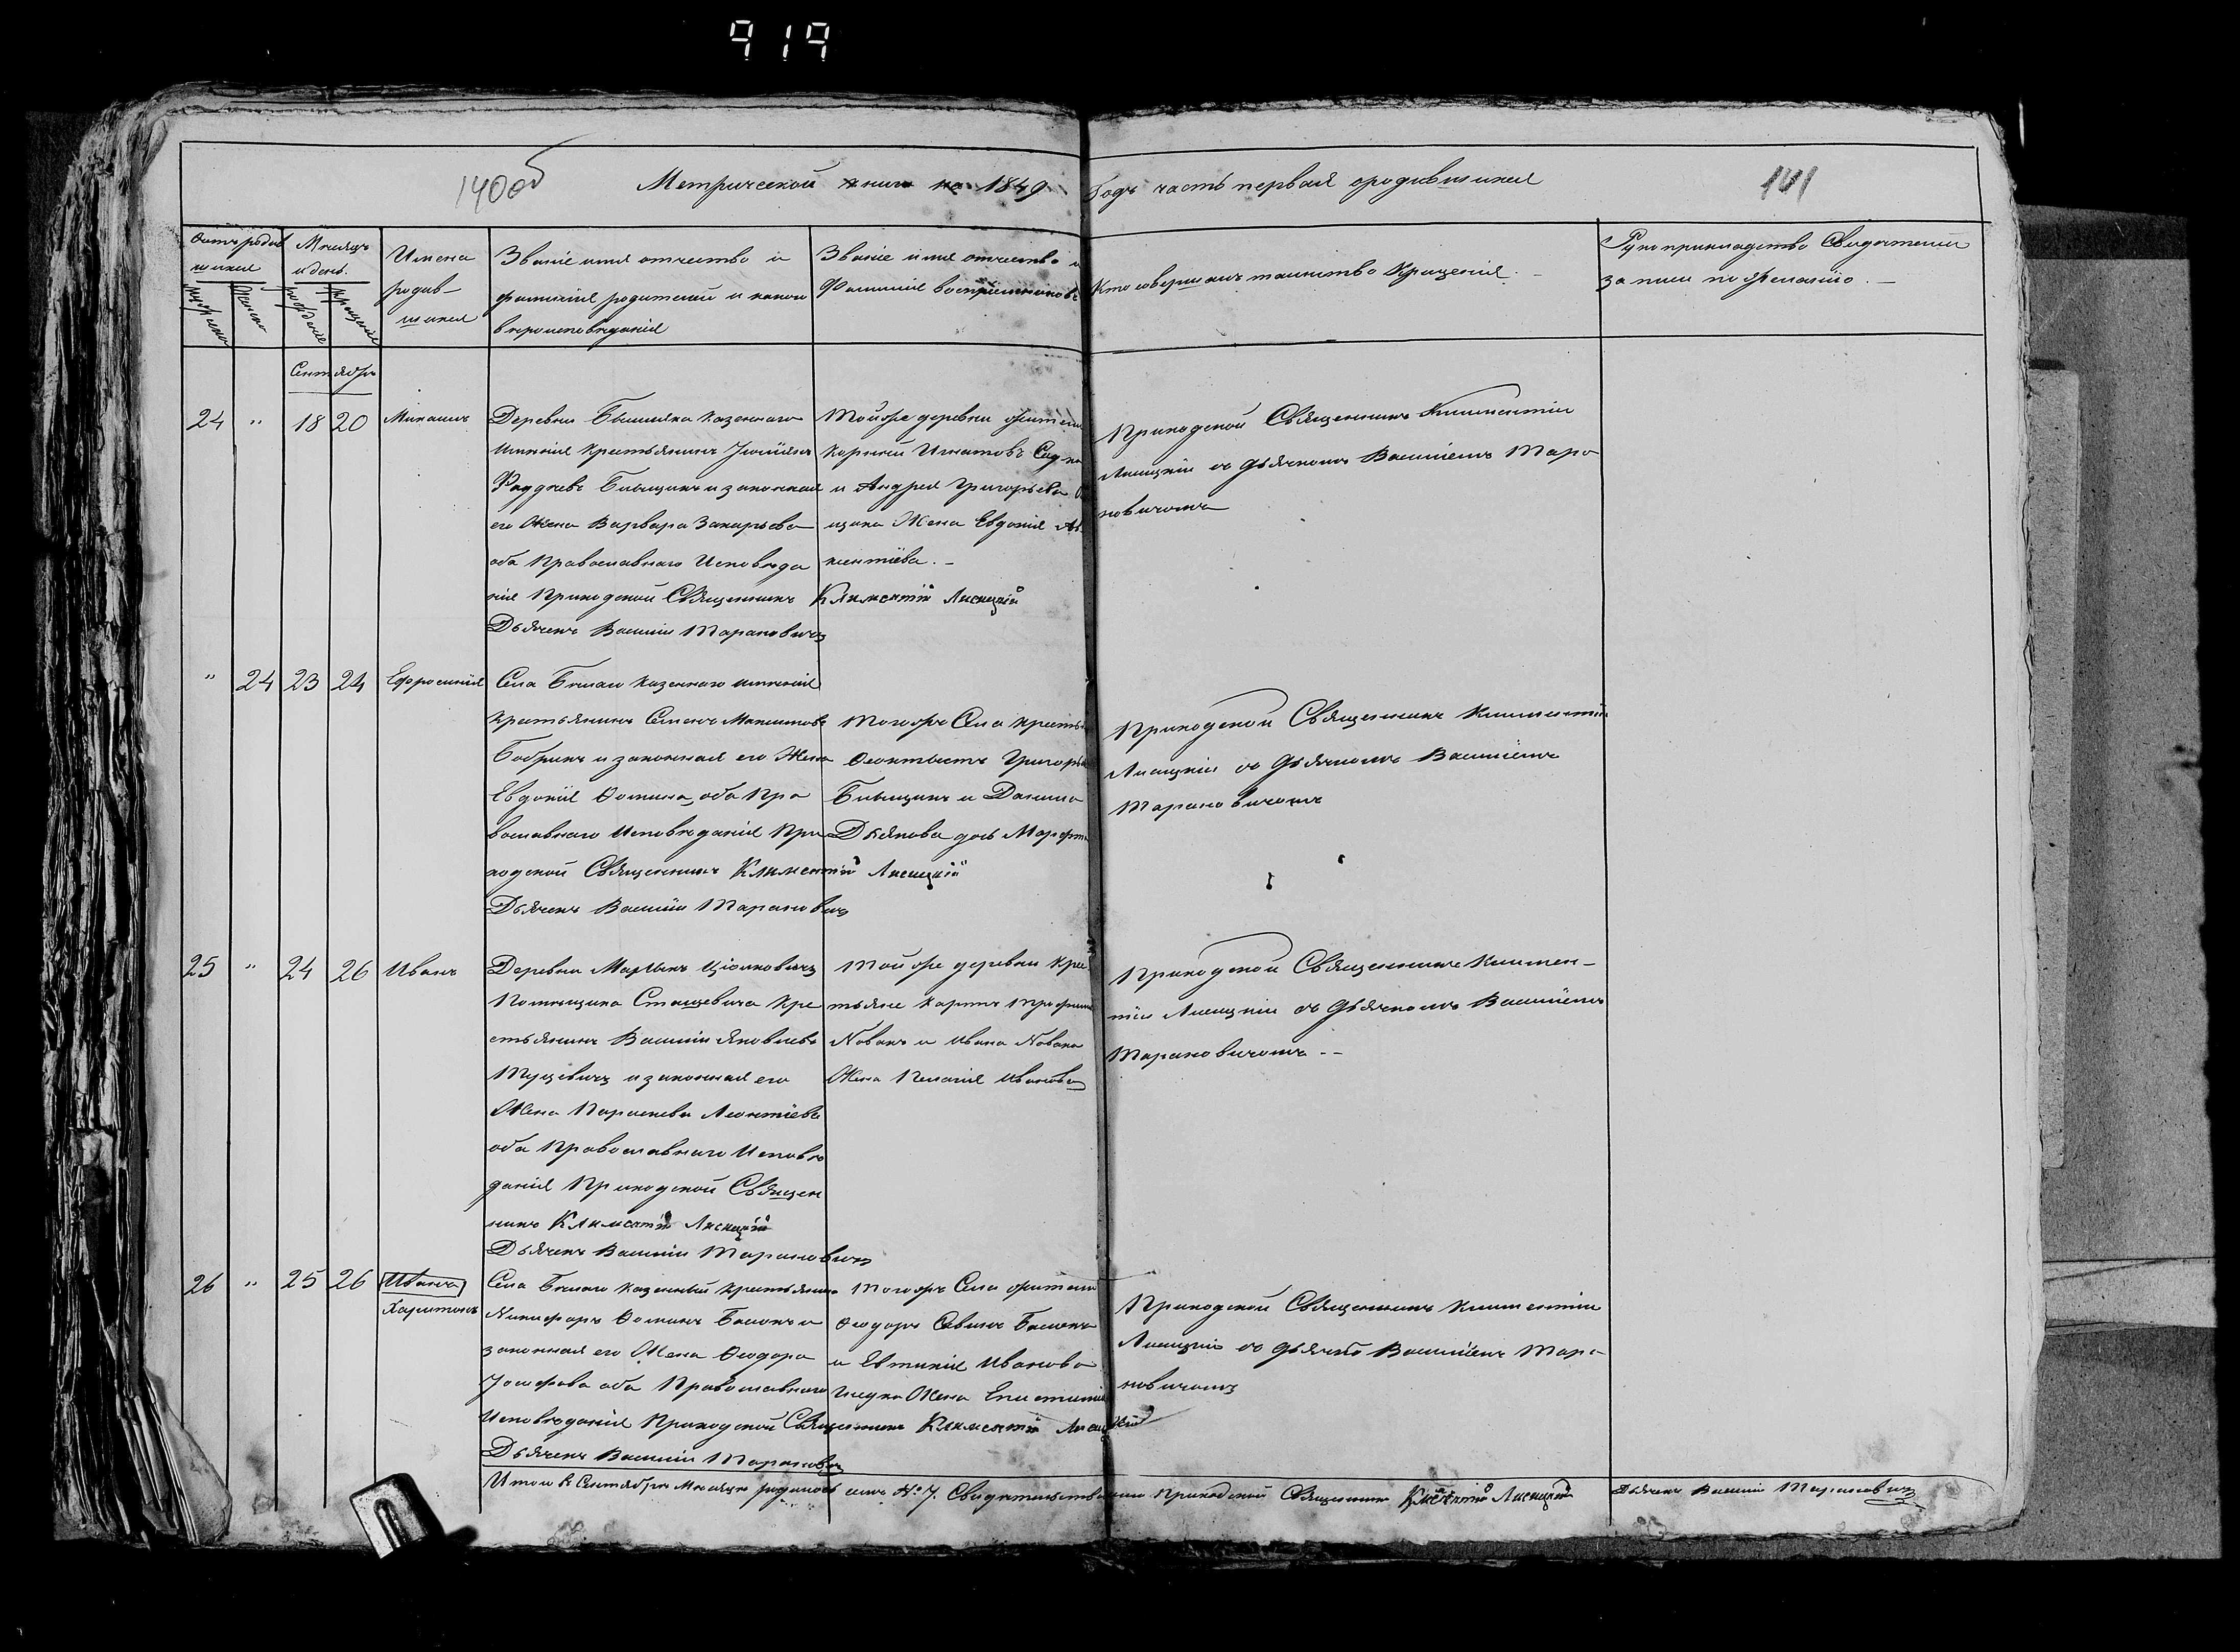 919
140об
Метрической книги на 1849
Годъ часть первая о родившихся
141
Счетъ родив
шихся
Мужеска
Женска
Месяцъ
и день.
рожденіе
крещеніе
Имена
родив-
шихся
Званіе имя отчество и
фамилія родителей и какого
вероисповеданія
Званіе имя отчество и
Фамилія воспріемниковъ
Кто совершалъ таинство Крещенія. -
Рукоприкладство Свидетелей
записи по желанію. -
Сентябрь
24 " 18 20
Деревни казеннаго
именія Крестьянинъ
и законная
его Жена Варвара Захарьева
оба Православнаго Исповеда
нія Приходской Священникъ Климентій Лисицкій
Дьячекъ Василій Тарановичъ
Той же деревни жители
Корнилій Игнатовъ
и Андрея Григорьева
Жена Евдокія
Приходской Священникъ Климентій
Лисицкій съ Дьячкомъ Василіемъ Тара
новичомъ
" 24 23 24 Ефросинія
Села Белаго казеннаго именія
Крестьянинъ Семенъ Максимовъ
Бобрикъ и законная его Жена
Евдокія Ѳомина оба Пра
вославнаго Исповеданія При
ходской Священникъ Климентій Лисицкій
Дьячекъ Василій Тарановичъ
Тогожъ Села
Ѳеоктистъ
и Данила
Дьякова дочь Марфа
Приходской Священникъ Климентій
Лисицкій съ Дьячкомъ Василіемъ
Тарановичомъ
25 " 24 26 Иванъ
Деревни
Помещика Стацевича Кре
стьянинъ Василій Яковлевъ
и законная его
Жена Параскева Леонтіева
оба Православнаго Исповѣ
данія Приходской Священ
никъ Климентій Лисицкій
Дьячекъ Василій Тарановичъ
Той же деревни Крес
тьяне Карпъ
Новакъ и Ивана Новака
Жена Пелагія Иванова
Приходской Священникъ Климен-
тій Лисицкій съ Дьячкомъ Василіемъ
Тарановичомъ --
26 " 25 26 Иванъ
Харитонъ
Села Белаго казенный Крестьянинъ
Никифоръ Ѳоминъ и
законная его Жена Ѳеодора
Іосифова оба Православнаго
Исповеданія Приходской Священникъ Климентій Лисицкій
Дьячекъ Василій Тарановичъ
Тогожъ Села жители
Ѳеодоръ Савинъ
и Евтихія Иванова
Жена
Приходской Священникъ Климентій
Лисицкій съ Дьячко Василіемъ Тара
новичомъ
Итого въ Сентябре Месяце родилось Приходской Священникъ Климентій Лисицкій Дьячекъ Василій Тарановичъ